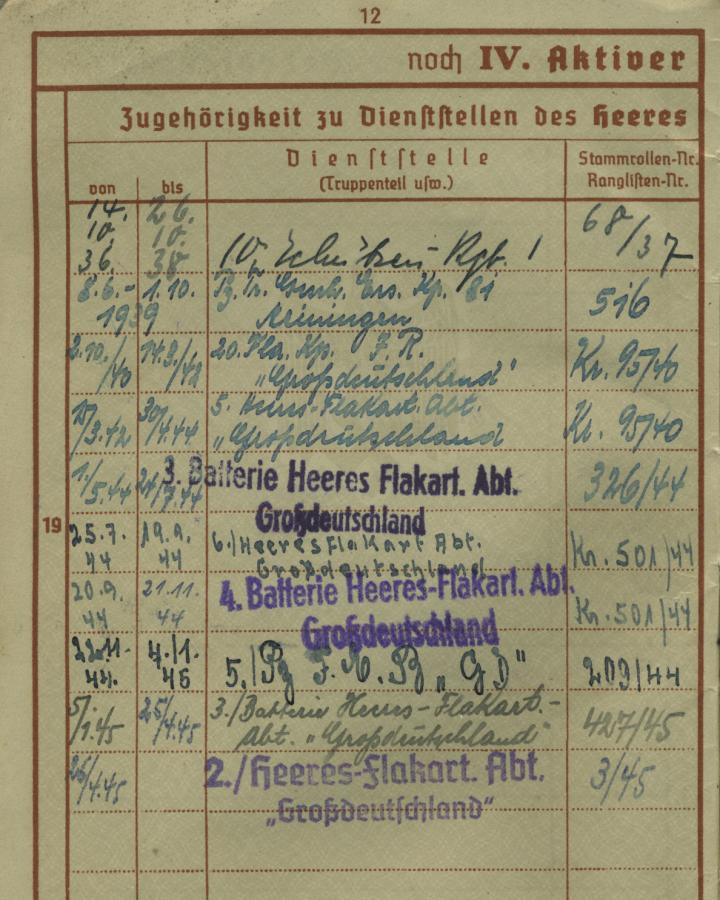 12
noch IV. Aktiver
Zugehörigkeit zu Dienststellen des Heeres
von bis Dienststelle (Truppenteil usw.) Stammrollen-Nr. Ranglisten-Nr.
14. 10. 36 26. 10. 38 10. Schützen-Rgt. 1 68/37
8.6.- 1.10. 1939 Ers. Kp. 81 516
Meiningen
2.10./40 14.3./42 20. Fla. Kp. I. R. Kr. 95/40
„Großdeutschland"
15/3.42 30/4.44 5. Heeres-Flakart. Abt. Kr. 95/40
„Großdeutschland
1/5.44 24/7.44 3. Batterie Heeres Flakart. Abt. 326/44
Großdeutschland
19
25.7. 44 19.9. 44 6./Heeres Flakart Abt. Kr. 501/44
Großdeutschland
20.9. 44 21.11. 44 4. Batterie Heeres-Flakart. Abt. Kr. 501/44
Großdeutschland
22.11. 44. 4./1. 45 5./Pz „GD" 209/44
5/1.45 25/4.45 3./Batterie Heeres-Flakart.- 427/45
Abt. „Großdeutschland"
26/4.45 2./Heeres-Flakart. Abt. 3/45
„Großdeutschland"